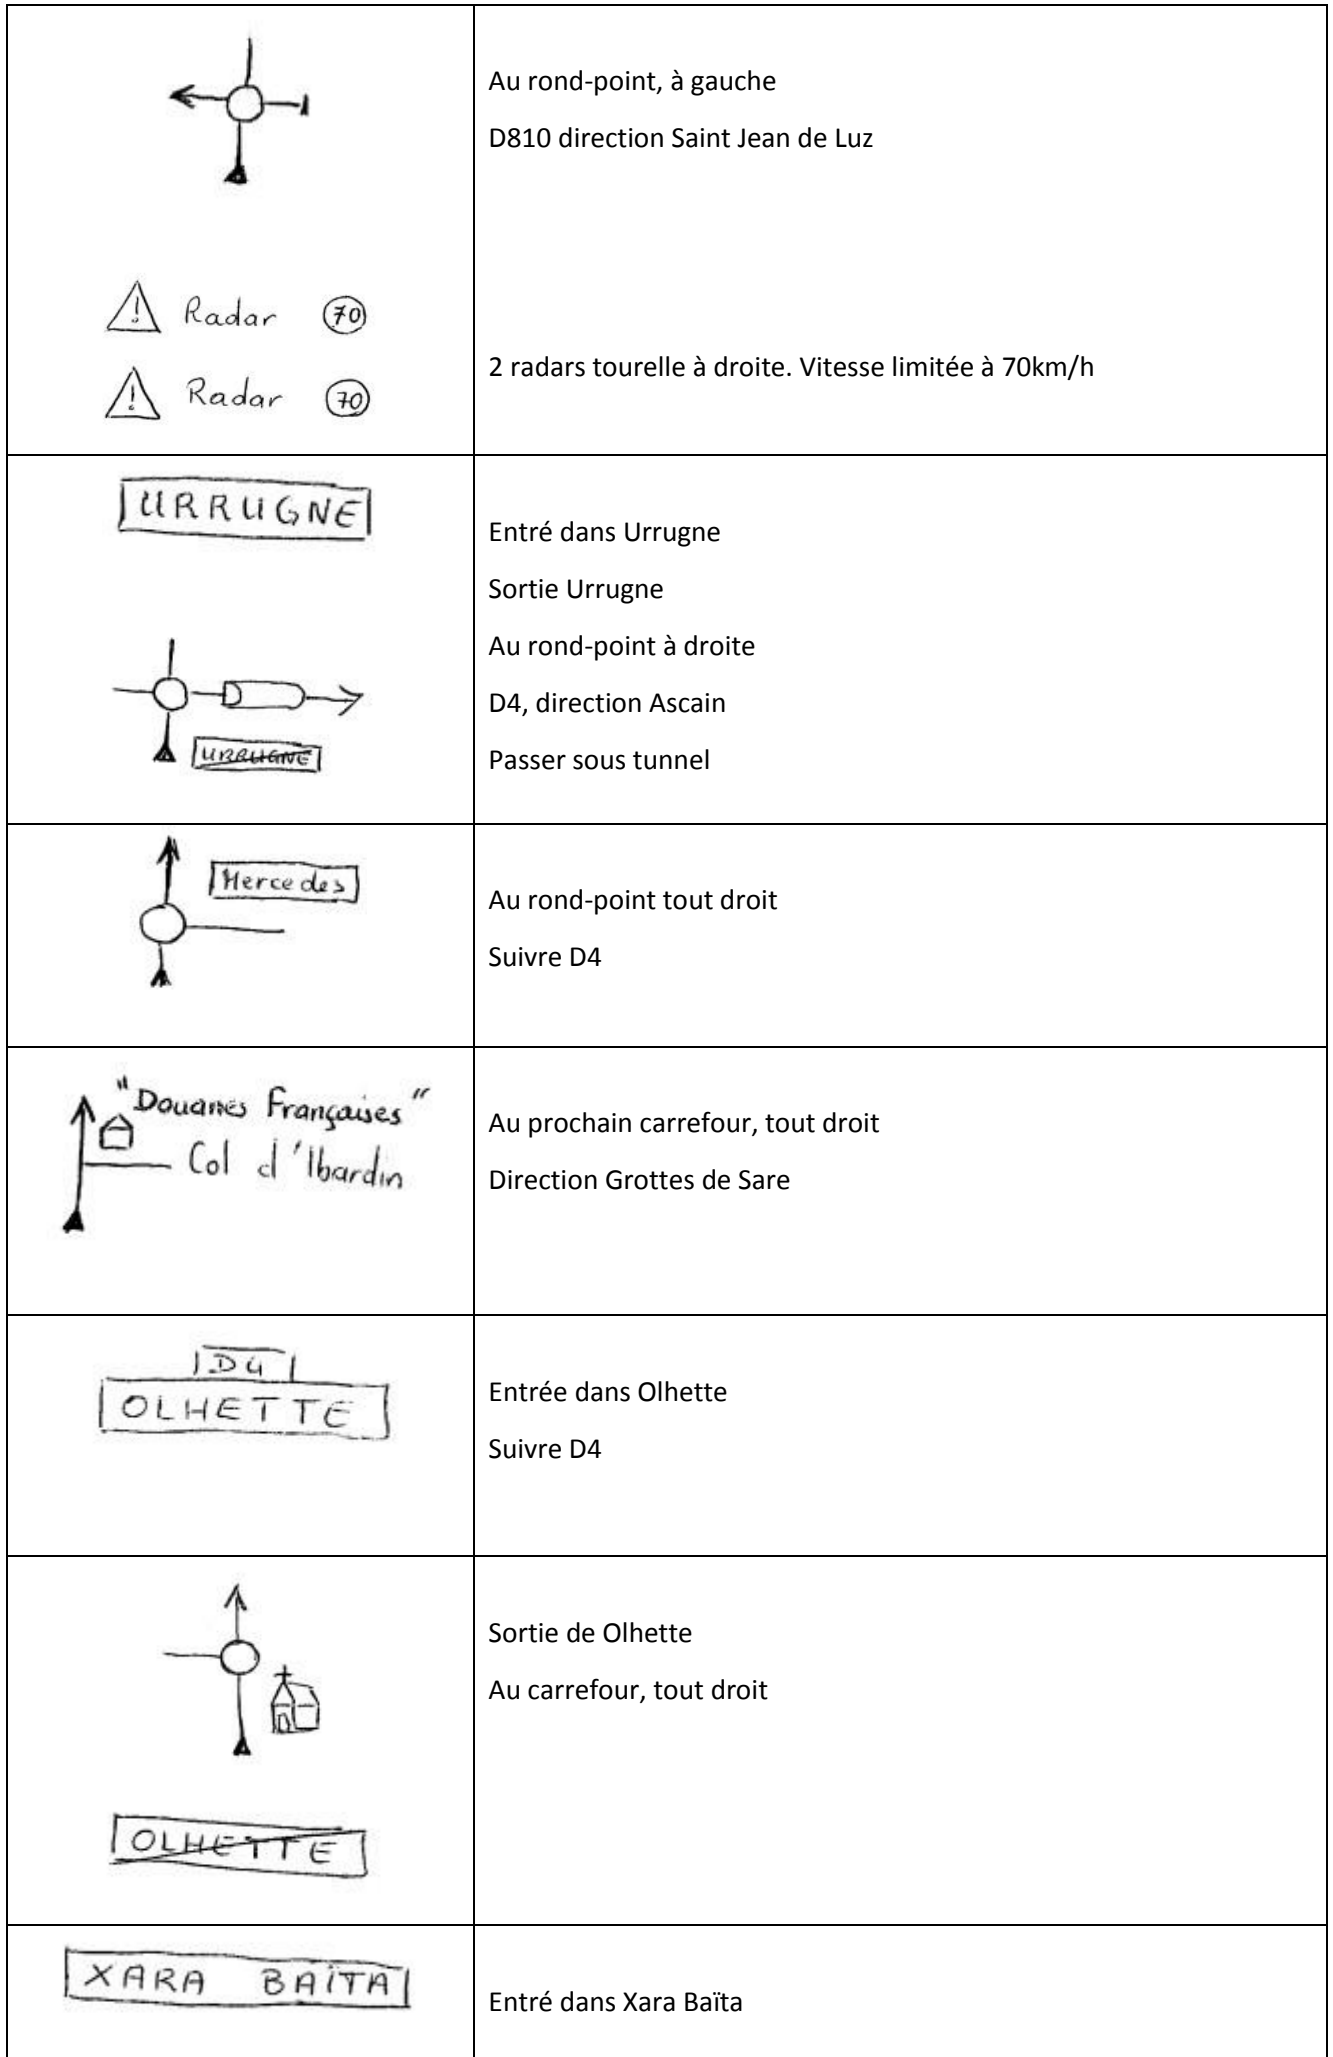 Au rond-point, à gauche
D810 direction Saint Jean de Luz
! Radar 70
! Radar 70
2 radars tourelle à droite. Vitesse limitée à 70km/h
URRUGNE
Entré dans Urrugne
Sortie Urrugne
Au rond-point à droite
D4, direction Ascain
Passer sous tunnel
URRUGNE
Mercedes
Au rond-point tout droit
Suivre D4
"Douanes Françaises"
Col d'Ibardin
Au prochain carrefour, tout droit
Direction Grottes de Sare
D4
OLHETTE
Entrée dans Olhette
Suivre D4
Sortie de Olhette
Au carrefour, tout droit
OLHETTE
XARA BAÏTA
Entré dans Xara Baïta